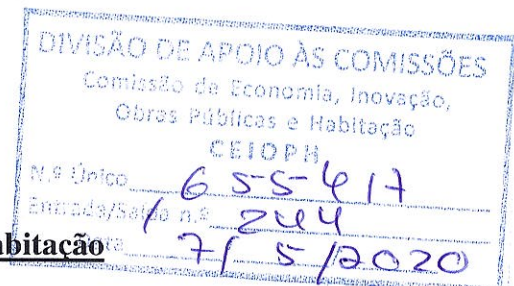 DIVISÃO DE APOIO ÀS COMISSÕES
Comissão de Economia, Inovação,
Obras Públicas e Habitação
CEIOPH
N.º Único 655417
Entrada/Saída n.º 244
Data 7/ 5 /2020
abitação